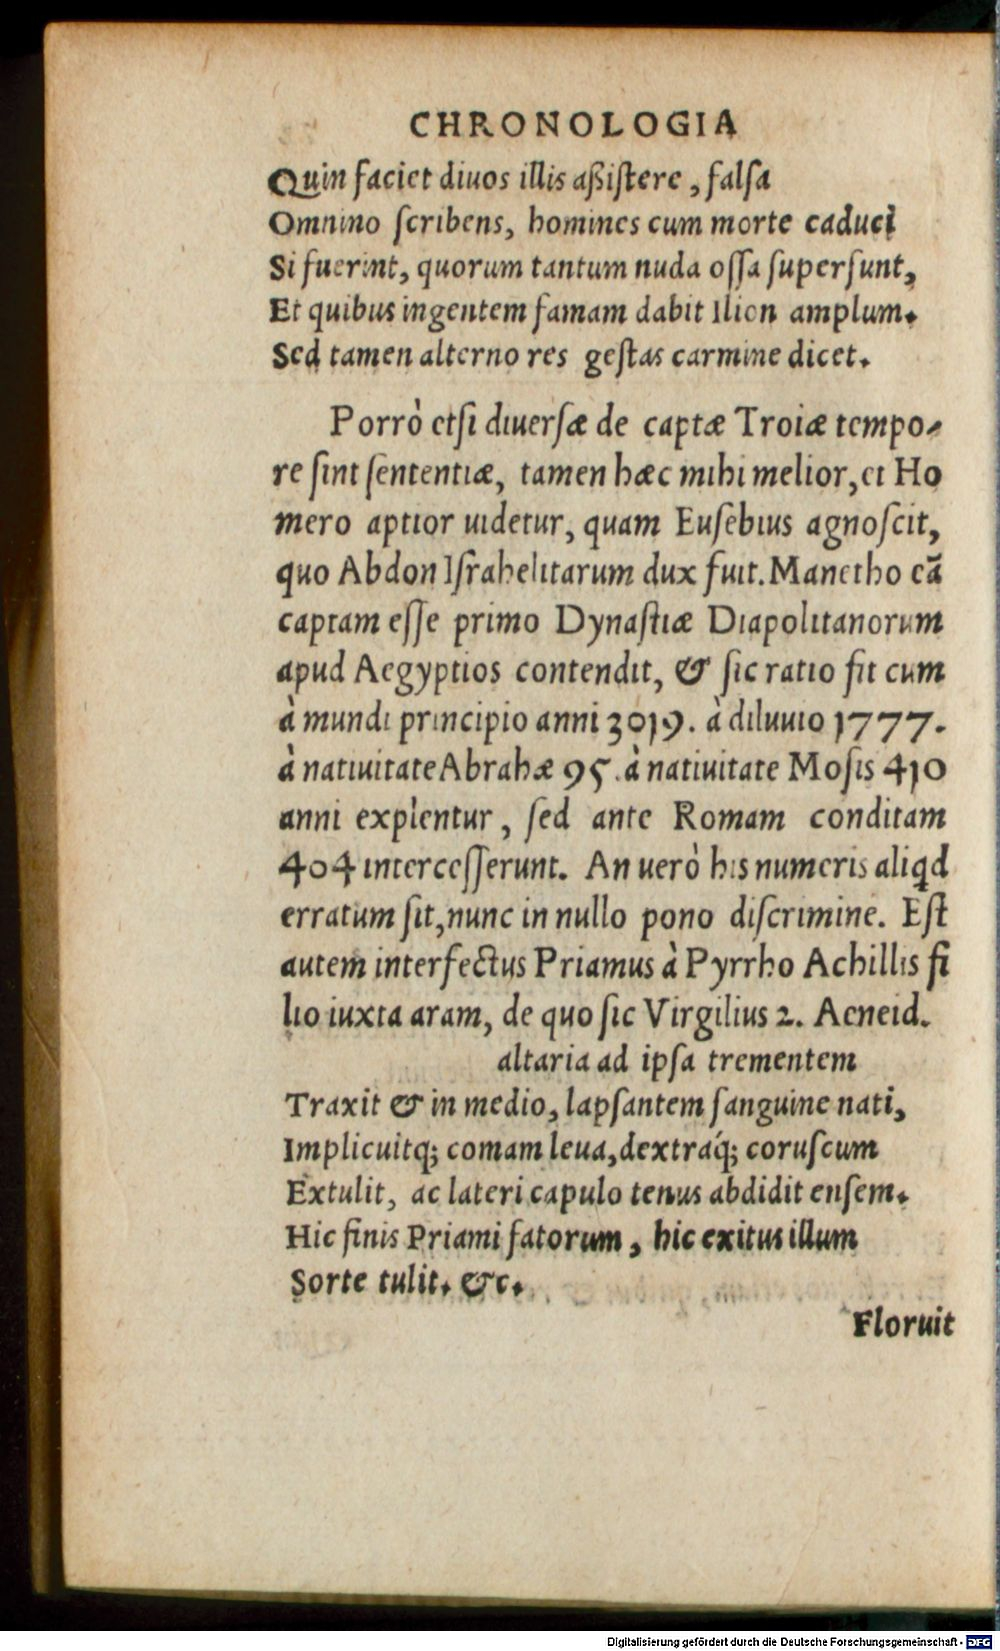 CHRONOLOGIA
Quin faciet diuos illis aßiſtere, falſa
Omnino ſcribens, homines cum morte caduci
Si fuerint, quorum tantum nuda oſſa ſuperſunt,
Et quibus ingentem famam dabit Ilion amplum.
Sed tamen alterno res geſtas carmine dicet.
Porrò etſi diuerſæ de captæ Troiæ tempo-
re ſint ſententiæ, tamen hæc mihi melior, et Ho
mero aptior uidetur, quam Euſebius agnoſcit,
quo Abdon Iſrahelitarum dux fuit. Manetho eã
captam eſſe primo Dynaſtiæ Diapolitanorum
apud Aegyptios contendit, & ſic ratio fit cum
à mundi principio anni 3019. à diluuio 1777.
à natiuitate Abrahæ 95. à natiuitate Moſis 410
anni explentur, ſed ante Romam conditam
404 interceſſerunt. An uerò his numeris aliqd
erratum ſit, nunc in nullo pono diſcrimine. Eſt
autem interfectus Priamus à Pyrrho Achillis fi
lio iuxta aram, de quo ſic Virgilius 2. Aeneid.
altaria ad ipſa trementem
Traxit & in medio, lapſantem ſanguine nati,
Implicuitq; comam leua, dextraq́; coruſcum
Extulit, ac lateri capulo tenus abdidit enſem.
Hic finis Priami fatorum, hic exitus illum
Sorte tulit. &c.
Floruit
Digitalisierung gefördert durch die Deutsche Forschungsgemeinschaft - DFG